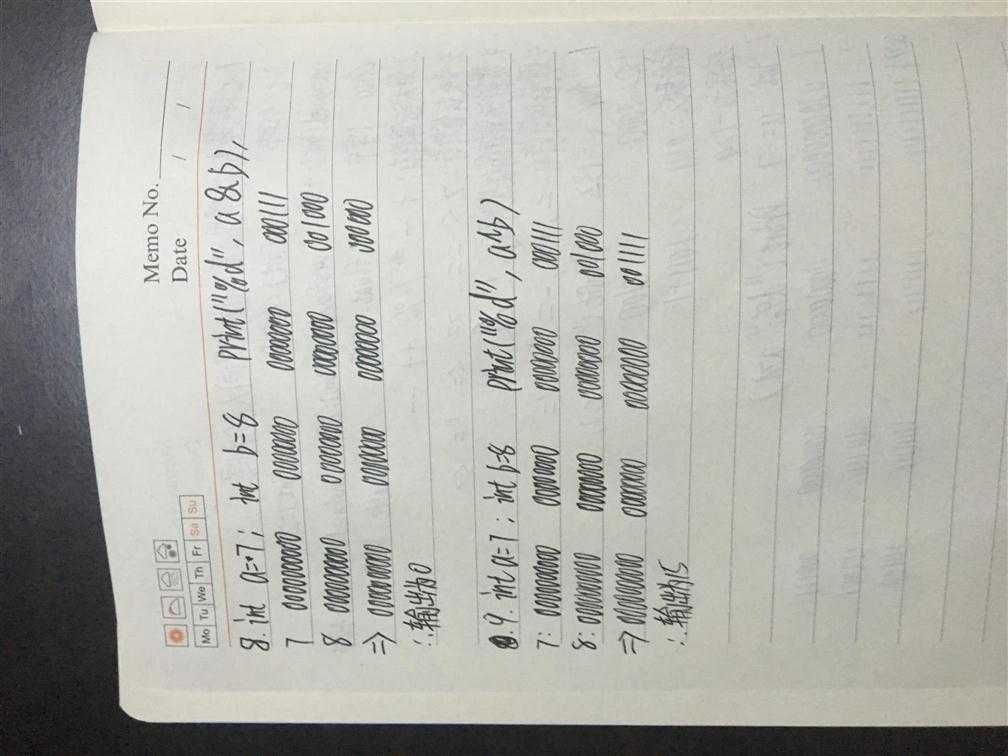 Memo No.
Mo Tu We Th Fr Sa Su
Date / /
8. int a=7; int b=8 print("%d", a&b);
7 00000000 00000000 00000000 000111
8 00000000 00000000 00000000 001000
=> 00000000 00000000 00000000 000000
∴输出为0
9. int a=7; int b=8 print("%d", a^b)
7: 00000000 00000000 00000000 000111
8: 00000000 00000000 00000000 001000
=> 00000000 00000000 00000000 001111
∴输出为15